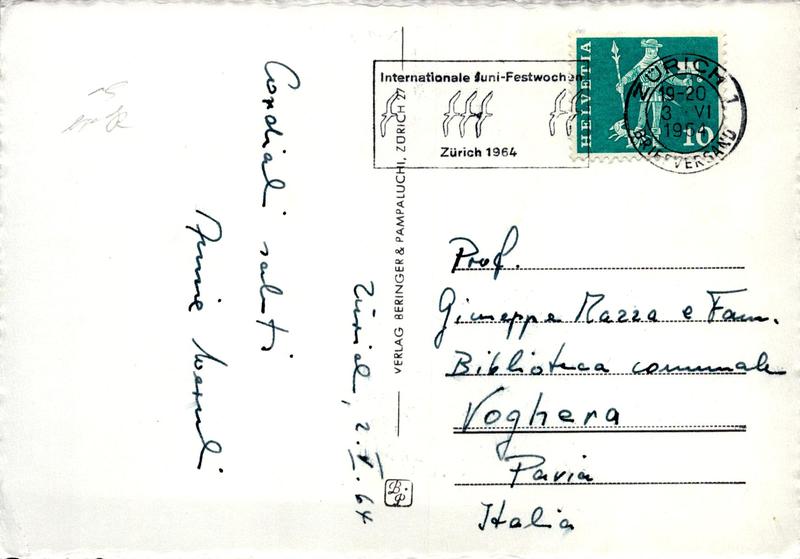 Cordiali saluti
Zürich, 2.VI.64
Internationale Juni-Festwochen
Zürich 1964
HELVETIA
10
ZÜRICH 1
19-20
3 VI
1964
BRIEFVERSAND
VERLAG BERINGER & PAMPALUCHI, ZÜRICH 27
B.P
Prof.
Giuseppe Mazza e Fam.
Biblioteca comunale
Voghera
Pavia
Italia